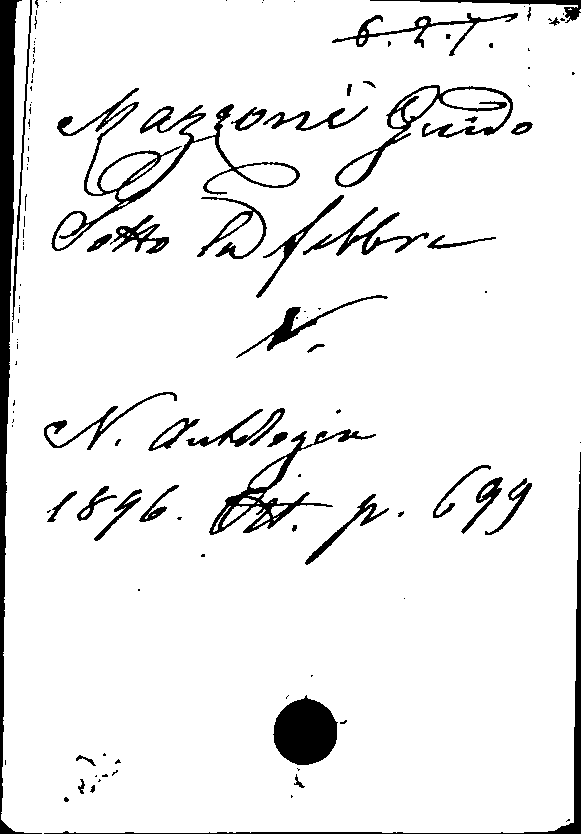 6.2.7.
Mazzoni Guido
Sotto la febbre
N.
N. Antologia
1896. Ott. p. 699